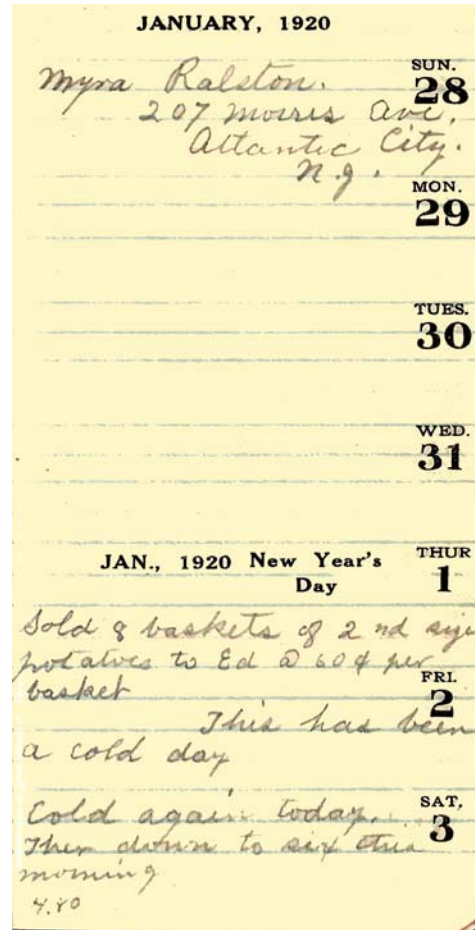 JANUARY, 1920
SUN.
28
Myra Ralston.
207 Morris Ave.
Atlantic City.
N.J.
MON.
29
TUES.
30
WED.
31
JAN., 1920 New Year's
Day
THUR
1
Sold 8 baskets of 2nd size
potatoes to Ed @ 60¢ per
basket
FRI.
2
This has been
a cold day
SAT,
3
Cold again today.
Ther down to six this
morning
4.80